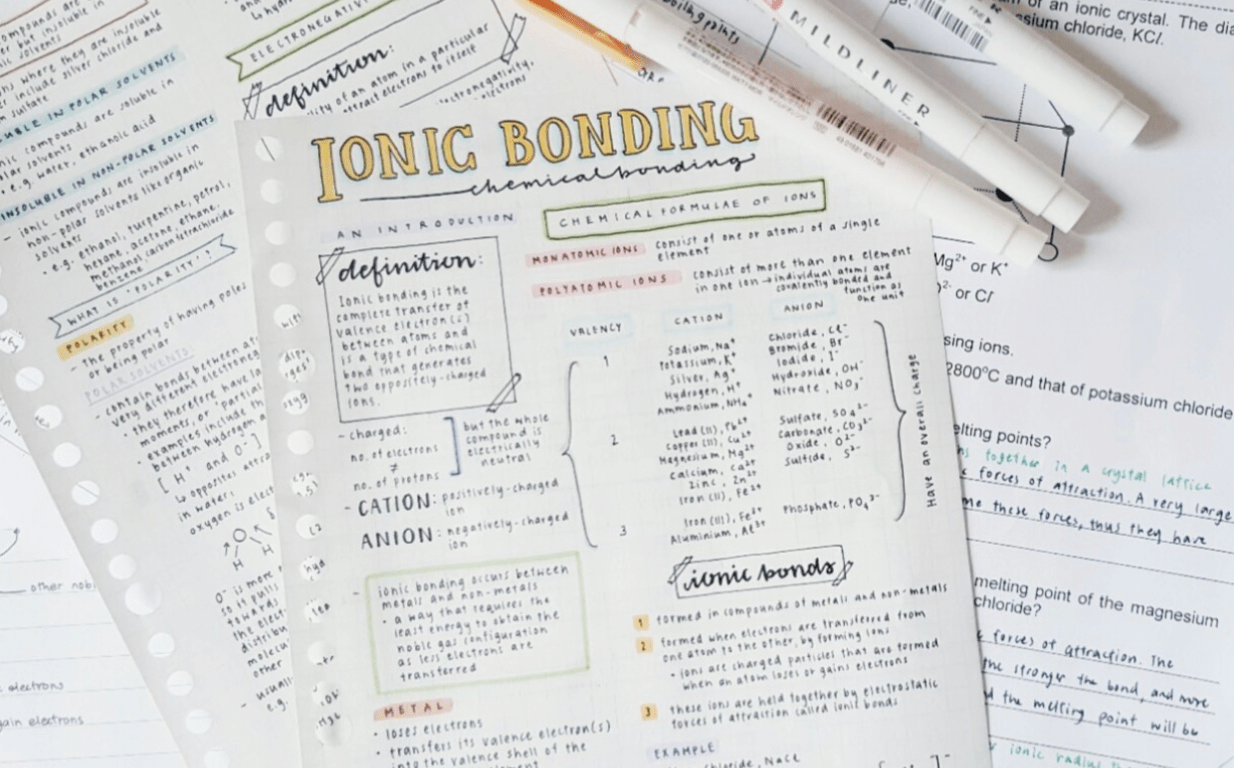 IONIC BONDING
chemical bonding
AN INTRODUCTION
definition:
Ionic bonding is the
complete transfer of
valence electron(s)
between atoms and
is a type of chemical
bond that generates
two oppositely-charged
ions.
- charged:
no. of electrons
≠
no. of protons
but the whole
compound is
electrically
neutral
- CATION: positively-charged
ion
ANION: negatively-charged
ion
- ionic bonding occurs between
metals and non-metals
• a way that requires the
least energy to obtain the
noble gas configuration
as less electrons are
transferred
METAL
• loses electrons
• transfers its valence electron(s)
into the valence shell of the
CHEMICAL FORMULAE OF IONS
MONATOMIC IONS consist of one or atoms of a single
element
POLYATOMIC IONS consist of more than one element
in one ion → individual atoms are
covalently bonded and
function as
one unit
VALENCY CATION ANION
1
Sodium, Na⁺ Chloride, Cl⁻
Potassium, K⁺ Bromide, Br⁻
Silver, Ag⁺ Iodide, I⁻
Hydrogen, H⁺ Hydroxide, OH⁻
Ammonium, NH₄⁺ Nitrate, NO₃⁻
2
Lead (II), Pb²⁺ Sulfate, SO₄²⁻
Copper (II), Cu²⁺ Carbonate, CO₃²⁻
Magnesium, Mg²⁺ Oxide, O²⁻
Calcium, Ca²⁺ Sulfide, S²⁻
Zinc, Zn²⁺
Iron (II), Fe²⁺
3
Iron (III), Fe³⁺ Phosphate, PO₄³⁻
Aluminium, Al³⁺
Have an overall charge
ionic bonds
1 formed in compounds of metals and non-metals
2 formed when electrons are transferred from
one atom to the other, by forming ions
• ions are charged particles that are formed
when an atom loses or gains electrons
3 these ions are held together by electrostatic
forces of attraction called ionic bonds
EXAMPLE
Chloride, NaCl
ELECTRONEGATIVI
definition:
of an atom in a particular
attract electrons to itself
electronegativity,
electrons
boiling points
MILDLINER
compounds are
but insoluble
solvents
where they are insoluble
include silver chloride and
sulfate
UBLE IN POLAR SOLVENTS
compounds are soluble in
solvents
e.g. water, ethanoic acid
INSOLUBLE IN NON-POLAR SOLVENTS
- ionic compounds are insoluble in
non-polar solvents like organic
solvents
• e.g. ethanol, turpentine, petrol,
hexane, acetone, ethane,
methanol, carbon tetrachloride
benzene
WHAT IS "POLARITY"?
POLARITY
- the property of having poles
or being polar
POLAR SOLVENTS
- contain bonds between
very different
• they therefore have
moments, or partial
• examples include
between hydrogen
[H⁺ and O⁻]
↳ opposites
in water,
oxygen is
O⁻ is more
so it pulls
towards
the
other
- usual
e.g.
other
electrons
gain electrons
of an ionic crystal. The dia
ssium chloride, KCl.
Mg²⁺ or K⁺
²⁻ or Cl
sing ions.
2800°C and that of potassium chloride
elting points?
together in a crystal lattice
forces of attraction. A very large
these forces, thus they have
melting point of the magnesium
chloride?
forces of attraction. The
the stronger the bond, and more
the melting point will be
ionic radius